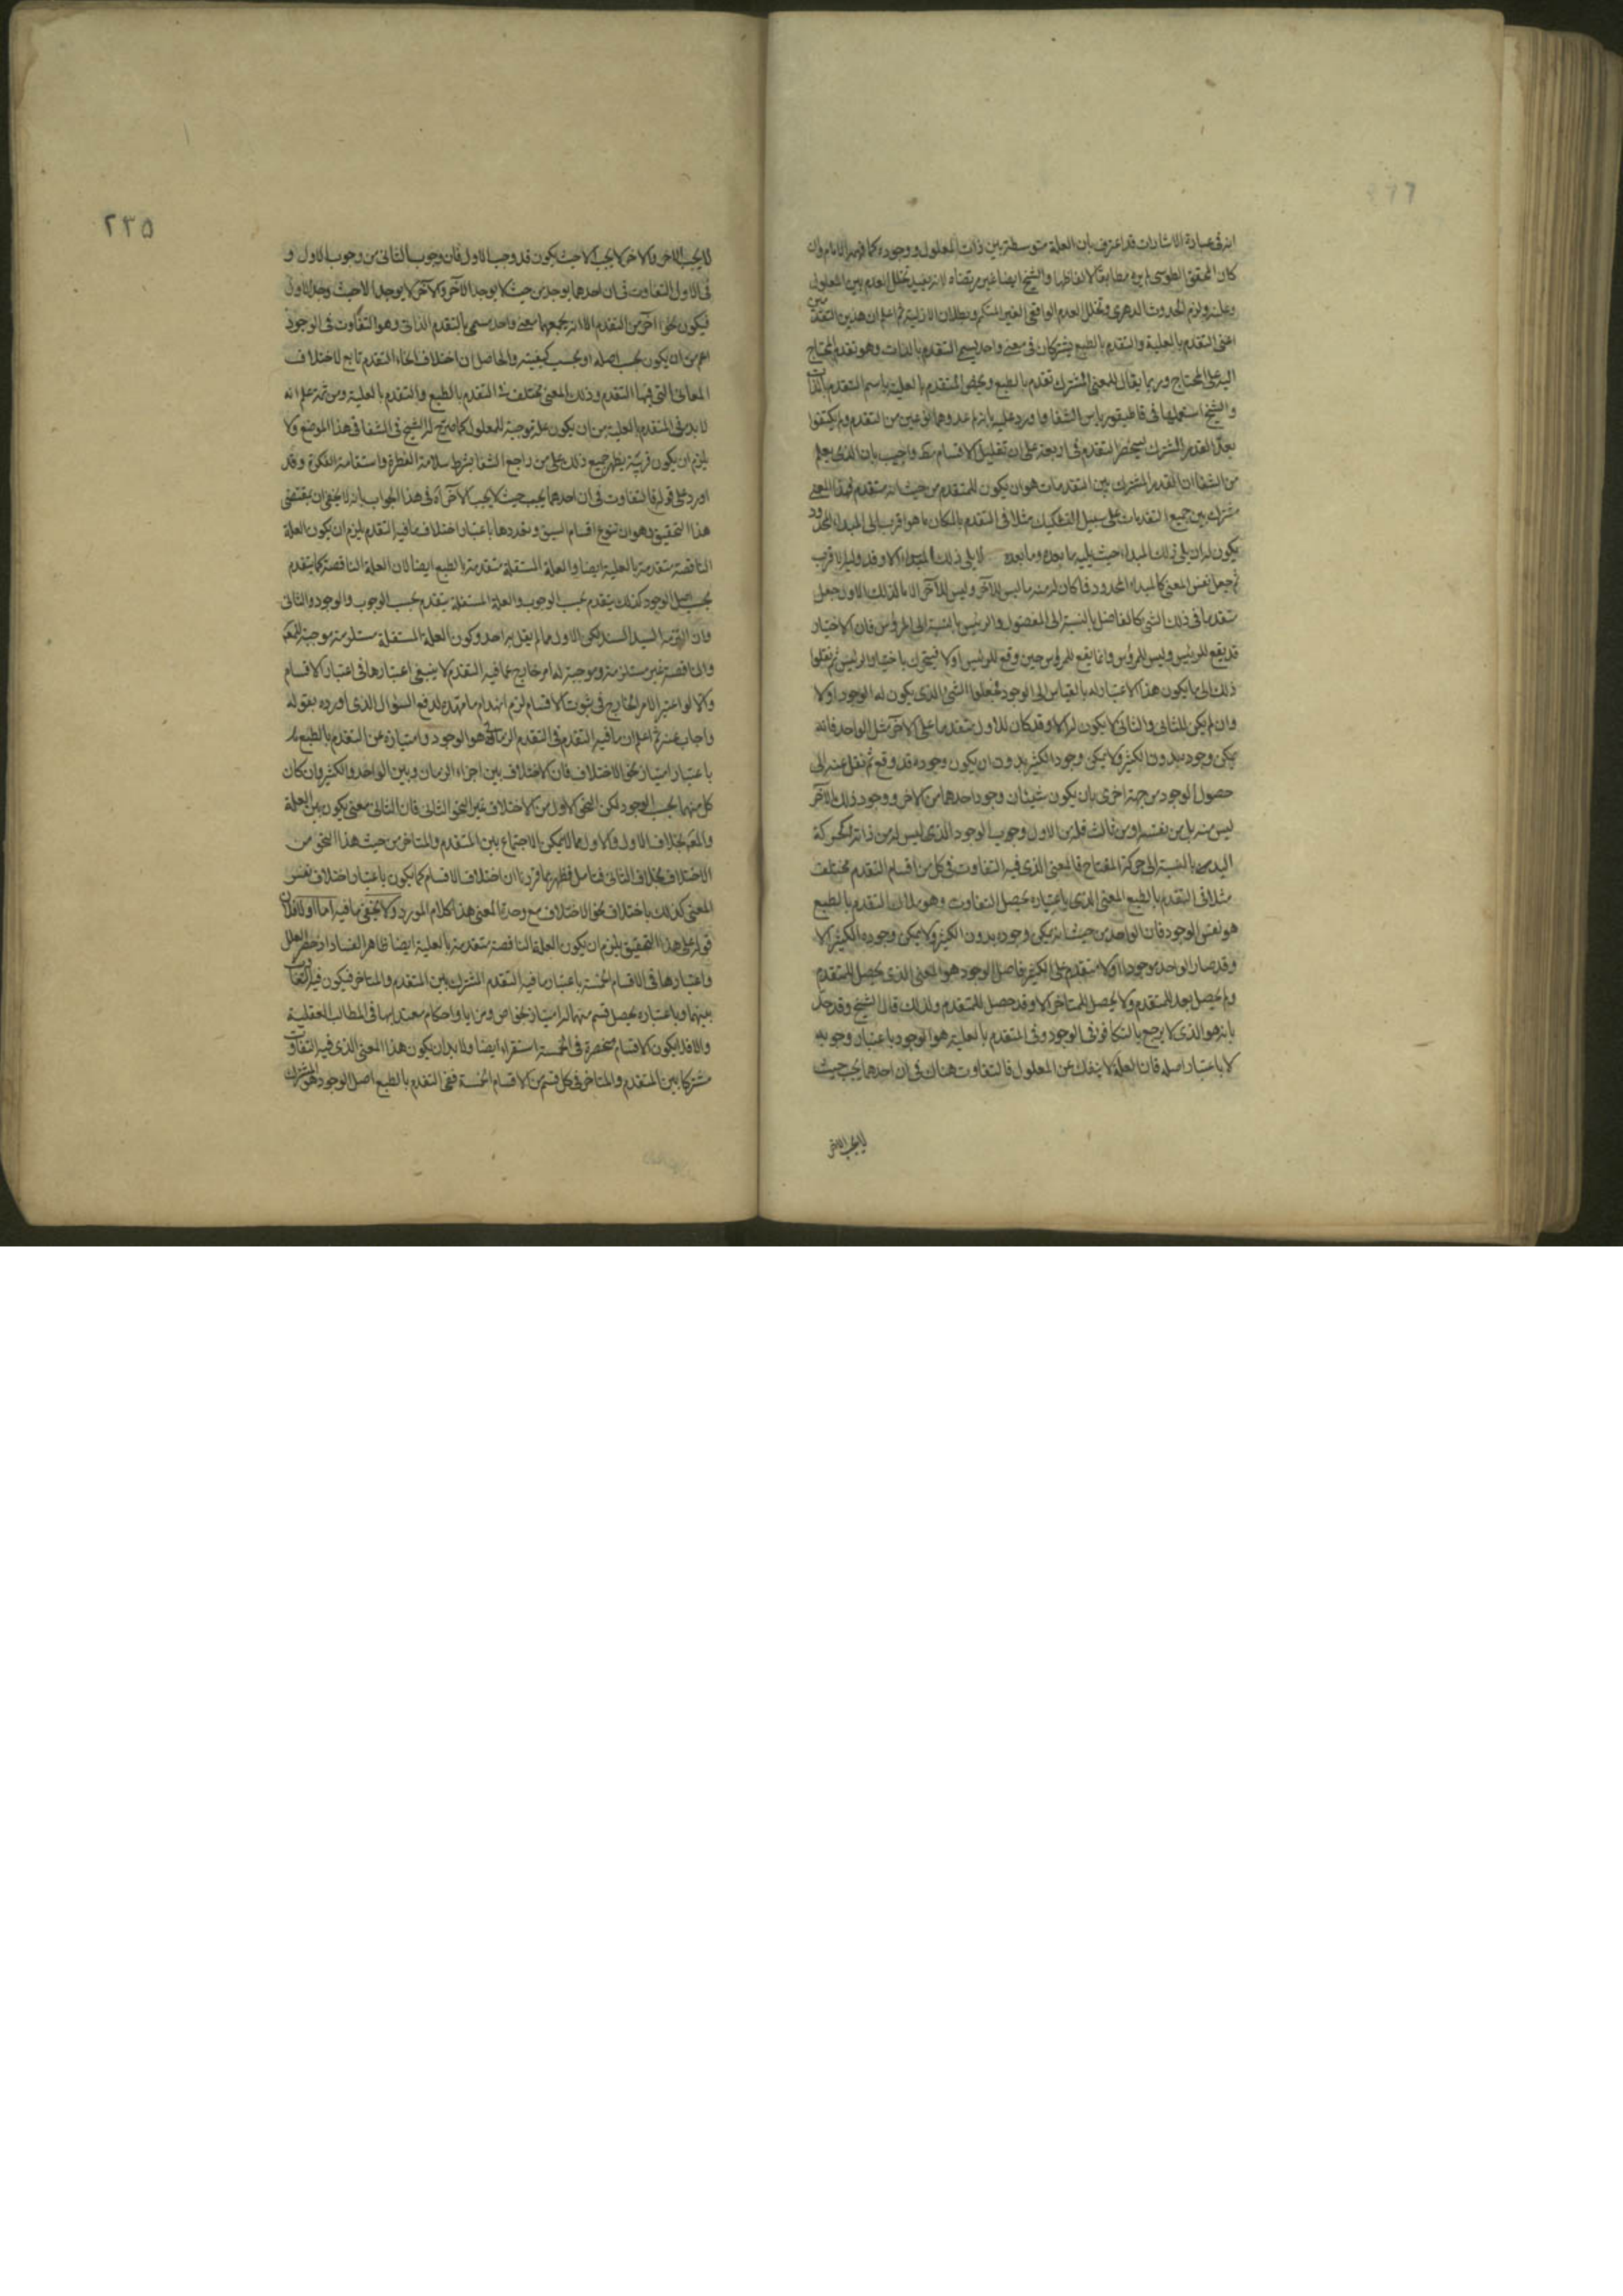 انه فى عبارة الاشارات قد اعترف بان العلة متوسطة بين ذات المعلول ووجوده كما فهمه الامام وان
كان المحقق الطوسى لم يره مطابقا لالفاظها والشيخ ايضا غير مرتضاه لانه يفيد تخلل العدم بين المعلول
وعلته ولزم الحدوث الدهرى وتخلل العدم الواقعى الغير المتكمم وبطلان الازلية ثم اعلم ان هذين التقدمين
اعنى التقدم بالعلية والتقدم بالطبع يشتركان فى معنى واحد يسمى التقدم بالذات وهو تقدم المحتاج
اليه على المحتاج وربما يقال للمعنى المشترك تقدم بالطبع ويخص المتقدم بالعلية باسم التقدم بالذات
والشيخ استعملها فى قاطيغورياس الشفا واورد عليه بانهم عدوهما نوعين من التقدم ولم يكتفوا
بعد القدر المشترك ليحصر التقدم فى اربعة على ان تقليل الاقسام واجيب بان الذى يعلم
من الشفا ان القدر المشترك بين المتقدمات هو ان يكون للمتقدم من حيث انه متقدم فهذا المعنى
مشترك بين جميع التقدمات على سبيل التشكيك مثلا فى التقدم بالمكان ما هو اقرب الى المبداء المحدود
يكون له ان يلى ذلك المبداء حيث يليه ما بعده وما بعده لا يلى ذلك المبداء الا وقد وليه الاقرب
ثم جعل نفس المعنى كالمبداء المحدود فما كان له منه ما ليس للآخر وليس للآخر الا ما لذلك الاول جعل
متقدما فى ذلك الشى كالفاضل بالنسبة الى المفضول والرئيس بالنسبة الى المرؤس فان الاختيار
قد يقع للرئيس وليس للمرؤس وانما يقع للمرؤس حين وقع للرئيس اولا فيتحرك باختيار الرئيس ثم نقلوا
ذلك الى ما يكون هذا الاعتبار له بالقياس الى الوجود فجعلوا الشئ الذى يكون له الوجود اولا
وان لم يكن للثانى والثانى لا يكون له الا وقد كان للاول متقدما على الآخر مثل الواحد فانه
يمكن وجوده بدون الكثير ولا يمكن وجود الكثير بدون ان يكون وجوده قد وقع ثم نقل عنه الى
حصول الوجود من جهة اخرى بان يكون شيئان وجود احدهما من الاخر ووجود ذلك الآخر
ليس منه بل من نفسه او من ثالث فله من الاول وجوب الوجود الذى ليس له من ذاته كحركة
اليد بالنسبة الى حركة المفتاح فالمعنى الذى فيه التفاوت فى كل من اقسام التقدم مختلف
مثلا فى التقدم بالطبع المعنى الذى باعتباره يحصل التفاوت وهو ملاك التقدم بالطبع
هو نفس الوجود فان الواحد من حيث انه يمكن وجوده بدون الكثير ولا يمكن وجود الكثير الا
وقد صار الواحد موجودا اولا متقدم على الكثير فاصل الوجود هو المعنى الذى يحصل للمتقدم
ولم يحصل بعد للمتقدم ولا يحصل للمتاخر الا وقد حصل للمتقدم ولذلك قال الشيخ وقد حد
بانه هو الذى لا يرجع بالتكافو فى الوجود وفى المتقدم بالعلية هو الوجود باعتبار وجوبه
لا باعتبار اصله فان العلة لا ينفك عن المعلول فالتفاوت هناك فى ان احدهما يجب حيث
لا يجب الاخر
٢٣٥
لا يجب الاخر والاخر لا يجب الا حيث يكون قد وجب الاول فان وجوب الثانى من وجوب الاول و
فى الاول التفاوت فى ان احدهما يوجد من حيث لا يوجد الآخر والآخر لا يوجد الا حيث وجد الاول
فيكون نحوا آخر من التقدم الا انه يجمعهما معنى واحد سمى بالتقدم الذاتى وهو التفاوت فى الوجود
اعم من ان يكون بحسب اصله او بحسب كيفيته والحاصل ان اختلاف انحاء التقدم تابع لاختلاف
المعانى التى فيها التقدم وذلك المعنى مختلف فى المتقدم بالطبع والمتقدم بالعلية ومن ثمة علم انه
لا بد فى المتقدم بالعلية من ان يكون علة موجبة للمعلول كما صرح له الشيخ فى الشفا فى هذا الموضع ولا
يلزم ان يكون قريبة يظهر جميع ذلك على من راجع الشفا بشرط سلامة الفطرة واستقامة الفكرة وقد
اورد على قوله فالتفاوت فى ان احدهما يجب حيث لا يجب الآخر آه فى هذا الجواب بانه لا يخفى ان بمقتضى
هذا التحقيق وهو ان تنوع اقسام السبق وتعددها باعتبار اختلاف ما فيه التقدم يلزم ان يكون العلة
الناقصة متقدمة بالعلية ايضا والعلة المستقلة متقدمة بالطبع ايضا لان العلة الناقصة كما يتقدم
بحسب اصل الوجود كذلك يتقدم بحسب الوجوب والعلة المستقلة يتقدم بحسب الوجوب والوجود والثانى
وان التزمه السيد السند لكن الاول مما لم يقل به احد وكون العلة المستقلة مستلزمة موجبة للمعلول
والناقصة غير مستلزمة وموجبة له امر خارج عما فيه التقدم لا ينبغى اعتبارها فى اعتبار الاقسام
والا لو اعتبر الامر الخارج فى ثبوت الاقسام لزم انهدام ما مهده لدفع السؤال الذى اورده بقوله
واجاب عنه ثم اعلم ان ما فيه التقدم فى التقدم الزمانى هو الوجود وامتيازه عن التقدم بالطبع
باعتبار امتياز نحو الاختلاف فان الاختلاف بين اجزاء الزمان وبين الواحد والكثير وان كان
كل منهما بحسب الوجود لكن النحو الاول من الاختلاف غير النحو الثانى فان الثانى معنى يكون بين العلة
والمعلول بخلاف الاول والاول مما لا يمكن الاجتماع بين المتقدم والمتاخر من حيث هذا النحو من
الاختلاف بخلاف الثانى فتامل فظهر مما قررنا ان اختلاف الاقسام كما يكون باعتبار اختلاف نفس
المعنى كذلك باختلاف نحو الاختلاف مع وحدة المعنى هذا كلام المورد ولا يخفى ما فيه اما اولا فلان
قوله على هذا التحقيق يلزم ان يكون العلة الناقصة متقدمة بالعلية ايضا ظاهر الفساد اذ حصر العلل
واعتبارها فى الاقسام الخمسة باعتبار ما فيه التقدم المشترك بين المتقدم والمتاخر فيكون فيه التفاوت
بينهما وباعتباره يحصل قسم منهما له امتياز بخواص ومزايا واحكام معتد بها فى المطالب العقلية
والا فلا يكون الاقسام منحصرة فى الخمسة استقراء ايضا ولا بد ان يكون هذا المعنى الذى فيه التفاوت
مشتركا بين المتقدم والمتاخر فى كل قسم من الاقسام الخمسة ففى التقدم بالطبع اصل الوجود هو المشترك